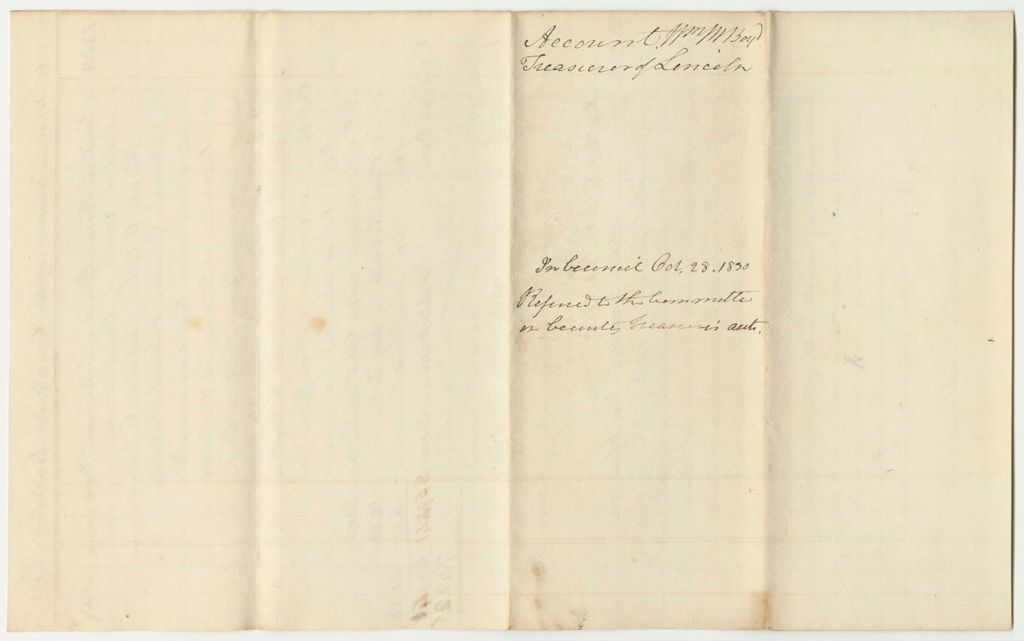 Account Wm M Boyd
Treasurer of Lincoln
In Council Oct. 28. 1830
Refered to the Committe
on County Treasurer's accts.